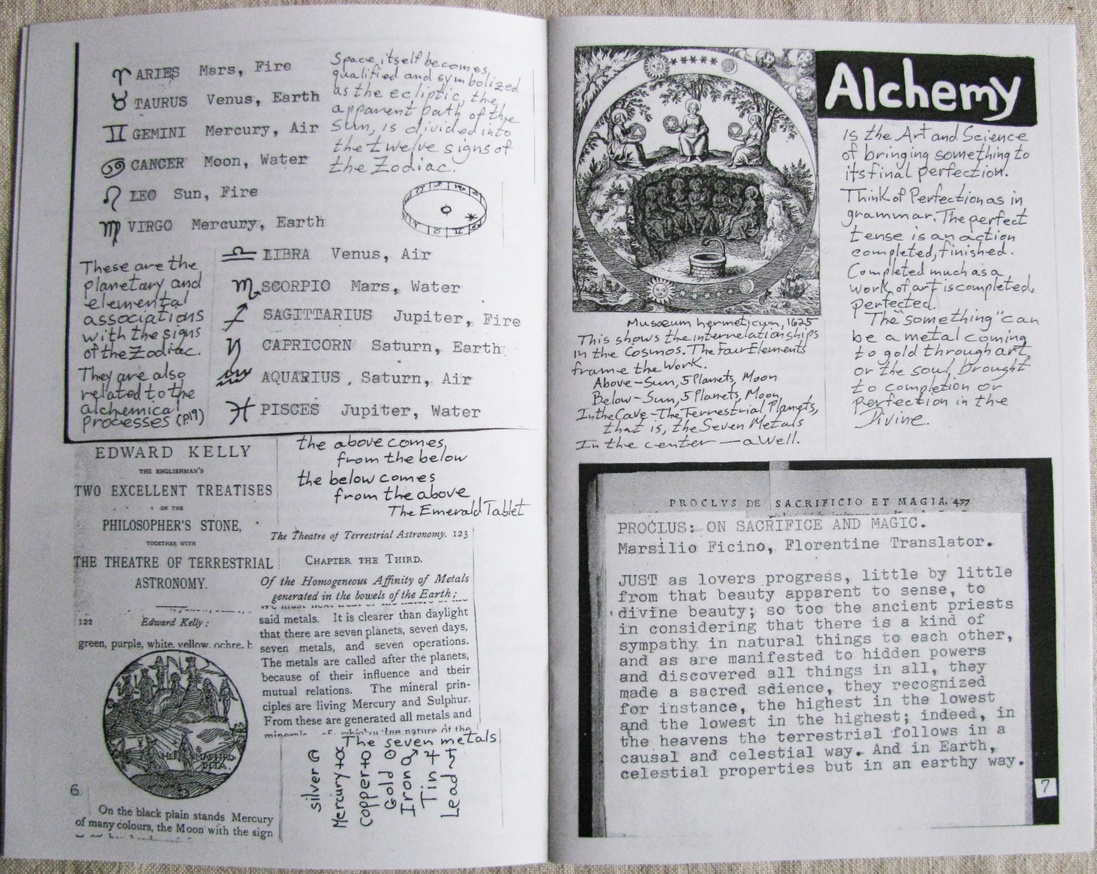 ♈ ARIES Mars, Fire
♉ TAURUS Venus, Earth
♊ GEMINI Mercury, Air
♋ CANCER Moon, Water
♌ LEO Sun, Fire
♍ VIRGO Mercury, Earth
Space itself becomes
qualified and symbolized
as the ecliptic, the
apparent path of the
Sun, is divided into
the twelve signs of
the Zodiac.
♎ LIBRA Venus, Air
♏ SCORPIO Mars, Water
♐ SAGITTARIUS Jupiter, Fire
♑ CAPRICORN Saturn, Earth
♒ AQUARIUS, Saturn, Air
♓ PISCES Jupiter, Water
These are the
planetary and
elemental
associations
with the signs
of the Zodiac.
They are also
related to the
alchemical
Processes (P.19)
EDWARD KELLY
THE ENGLISHMAN'S
TWO EXCELLENT TREATISES
ON THE
PHILOSOPHER'S STONE,
TOGETHER WITH
THE THEATRE OF TERRESTRIAL
ASTRONOMY.
122 Edward Kelly:
green, purple, white, yellow, ochre, b
On the black plain stands Mercury
of many colours, the Moon with the sign
6
the above comes,
from the below
the below comes
from the above
The Emerald Tablet
The Theatre of Terrestrial Astronomy. 123
CHAPTER THE THIRD.
Of the Homogeneous Affinity of Metals
generated in the bowels of the Earth;
said metals. It is clearer than daylight
that there are seven planets, seven days,
seven metals, and seven operations.
The metals are called after the planets,
because of their influence and their
mutual relations. The mineral prin-
ciples are living Mercury and Sulphur.
From these are generated all metals and
The seven metals
silver ☾
Mercury ☿
Copper ♀
Gold ☉
Iron ♂
Tin ♃
Lead ♄
Musæum hermeticum, 1625
This shows the interrelationships
in the Cosmos. The Four Elements
frame the Work.
Above-Sun, 5 Planets, Moon
Below-Sun, 5 Planets, Moon,
In the Cave-The Terrestrial Planets,
that is, the Seven Metals
In the center — a Well.
Alchemy
is the Art and Science
of bringing something to
its final perfection.
Think of Perfection as in
grammar. The perfect
tense is an action
completed, finished.
Completed much as a
work of art is completed,
perfected.
The "something" can
be a metal coming
to gold through art
or the soul, brought
to completion or
perfection in the
Divine.
PROCLVS DE SACRIFICIO ET MAGIA. 477
PROCLUS: ON SACRIFICE AND MAGIC.
Marsilio Ficino, Florentine Translator.
JUST as lovers progress, little by little
from that beauty apparent to sense, to
divine beauty; so too the ancient priests
in considering that there is a kind of
sympathy in natural things to each other,
and as are manifested to hidden powers
and discovered all things in all, they
made a sacred science, they recognized
for instance, the highest in the lowest
and the lowest in the highest; indeed, in
the heavens the terrestrial follows in a
causal and celestial way. And in Earth,
celestial properties but in an earthy way.
7